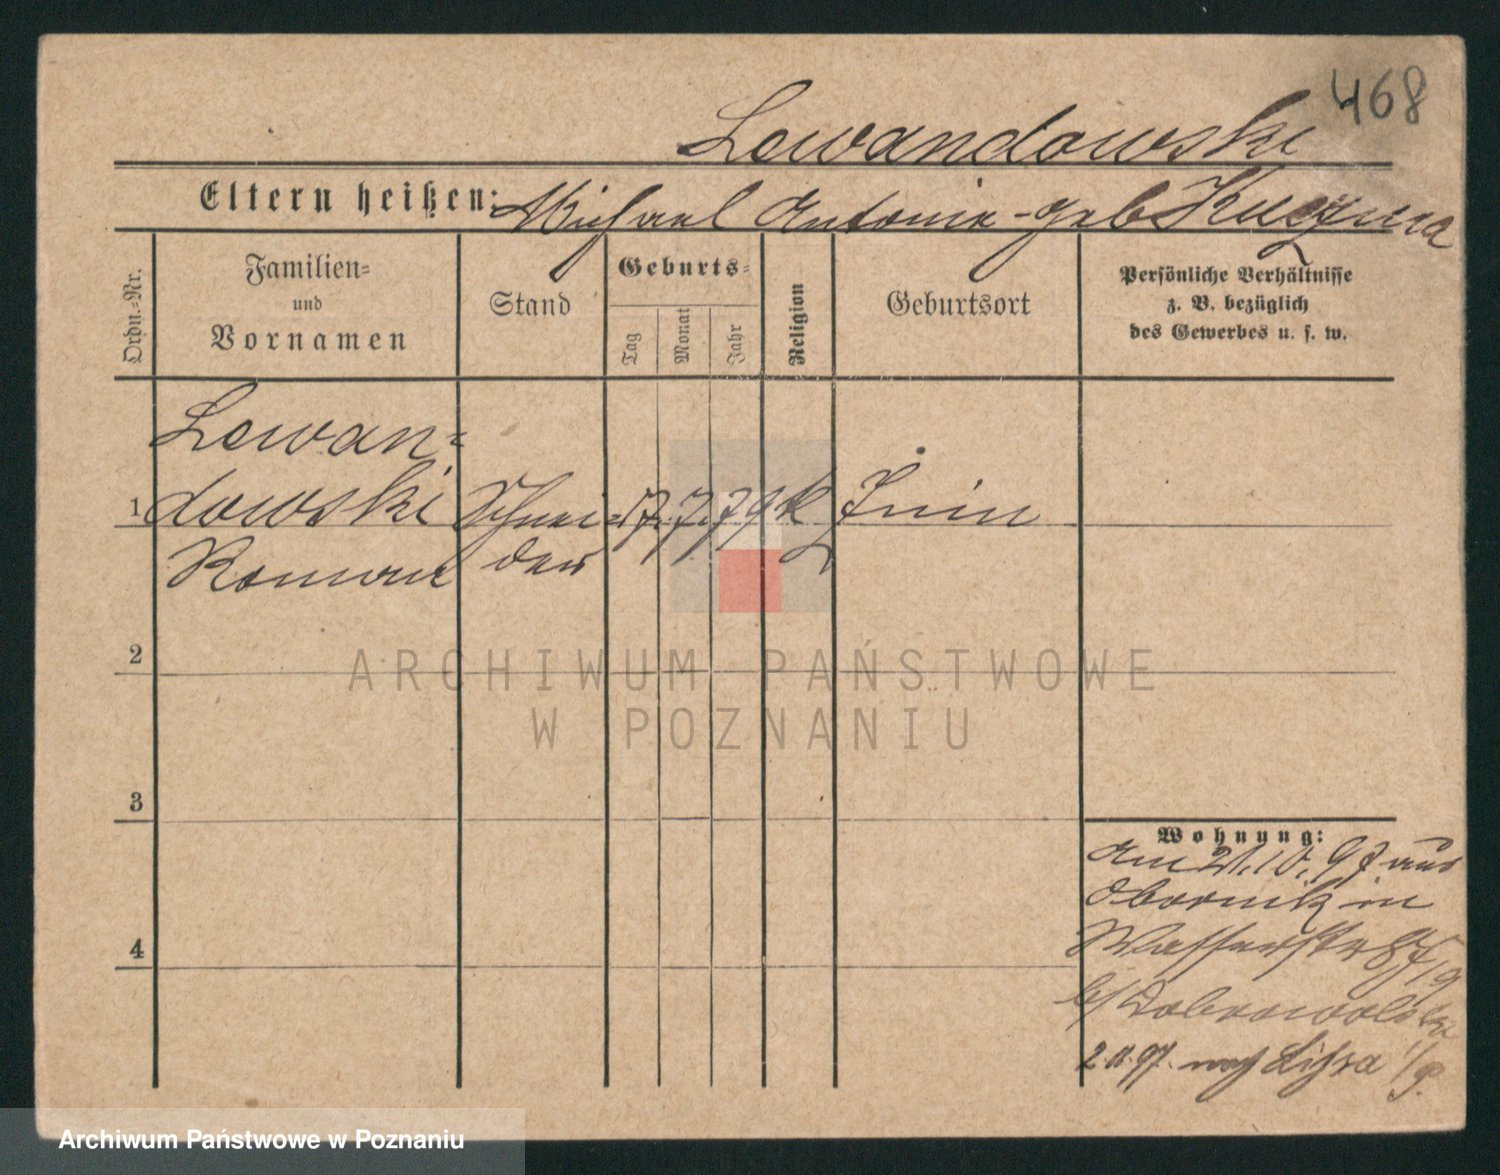 468
Lewandowski
Eltern heißen: Michael Antonie geb Kuczma
Ordn.-Nr.
Familien-
und
Vornamen
Stand
Geburts-
Tag
Monat
Jahr
Religion
Geburtsort
Persönliche Verhältnisse
z. B. bezüglich
des Gewerbes u. s. w.
Lewan-
1 dowski Schnei- 17. 7. 79 k Znin
Roman der
2
ARCHIWUM PAŃSTWOWE
W POZNANIU
3
Wohnung:
Am 21.10.97 aus
Obornik in
Wasserstr
b/ Dobrowolska
4
2.11.97. nach Lissa i/P.
Archiwum Państwowe w Poznaniu